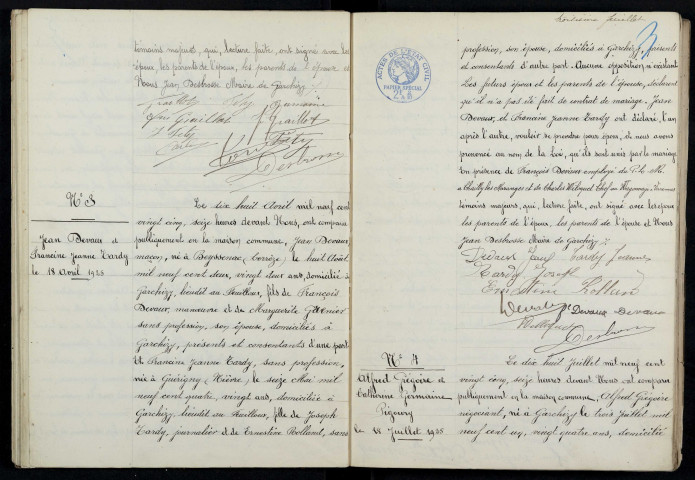 témoins majeurs, qui, lecture faite, ont signé avec les
époux, les parents de l'époux, les parents de l'épouse et
Nous Jean Desbrosse Maire de Garchizy
N° 3
Jean Devaux et
Francine Jeanne Tardy
le 18 Avril 1925
Le dix huit Avril mil neuf cent
vingt cinq, seize heures devant Nous, ont comparu
publiquement en la maison commune, Jean Devaux
maçon, né à Beyssenac (Corrèze) le huit Août
mil neuf cent deux, vingt deux ans, domicilié à
Garchizy, lieudit au fils de François
Devaux, manœuvre et de Marguerite
sans profession, son épouse, domiciliés à
Garchizy, présents et consentants d'une part
et Francine Jeanne Tardy, sans profession,
née à Guérigny (Nièvre) le seize Mai mil
neuf cent quatre, vingt ans, domiciliée à
Garchizy, lieudit au fille de Joseph
Tardy, journalier et de Ernestine Rolland, sans
ACTES DE L'ÉTAT CIVIL
PAPIER SPÉCIAL
profession, son épouse, domiciliés à Garchizy, présents
et consentants d'autre part. Aucune opposition n'existant
Les futurs époux et les parents de l'épouse, déclarent
qu'il n'a pas été fait de contrat de mariage. Jean
Devaux, et Francine Jeanne Tardy ont déclaré, l'un
après l'autre, vouloir se prendre pour époux, et nous avons
prononcé au nom de la Loi, qu'ils sont unis par le mariage.
En présence de François Devaux employé du P.L.M.
à et de Charles Chef
témoins majeurs, qui, lecture faite, ont signé avec les époux
les parents de l'époux, les parents de l'épouse et Nous
Jean Desbrosse Maire de Garchizy
Tardy Joseph
Devaux Devaux
Desbrosse
N° 4
Alfred Grégoire et
Catherine Germaine
Rigoury
le 18 Juillet 1925
Le dix huit Juillet mil neuf cent
vingt cinq, seize heures, devant Nous ont comparu
publiquement en la maison commune, Alfred Grégoire
négociant, né à Garchizy le trois Juillet mil
neuf cent un, vingt quatre ans, domicilié